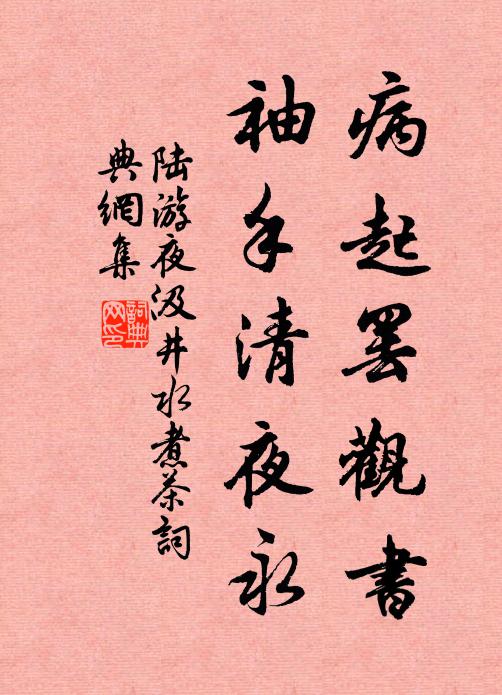 病起罢觀書
袖手清夜永
陆游夜汲井水煮茶詞
典網集
詞典
网印